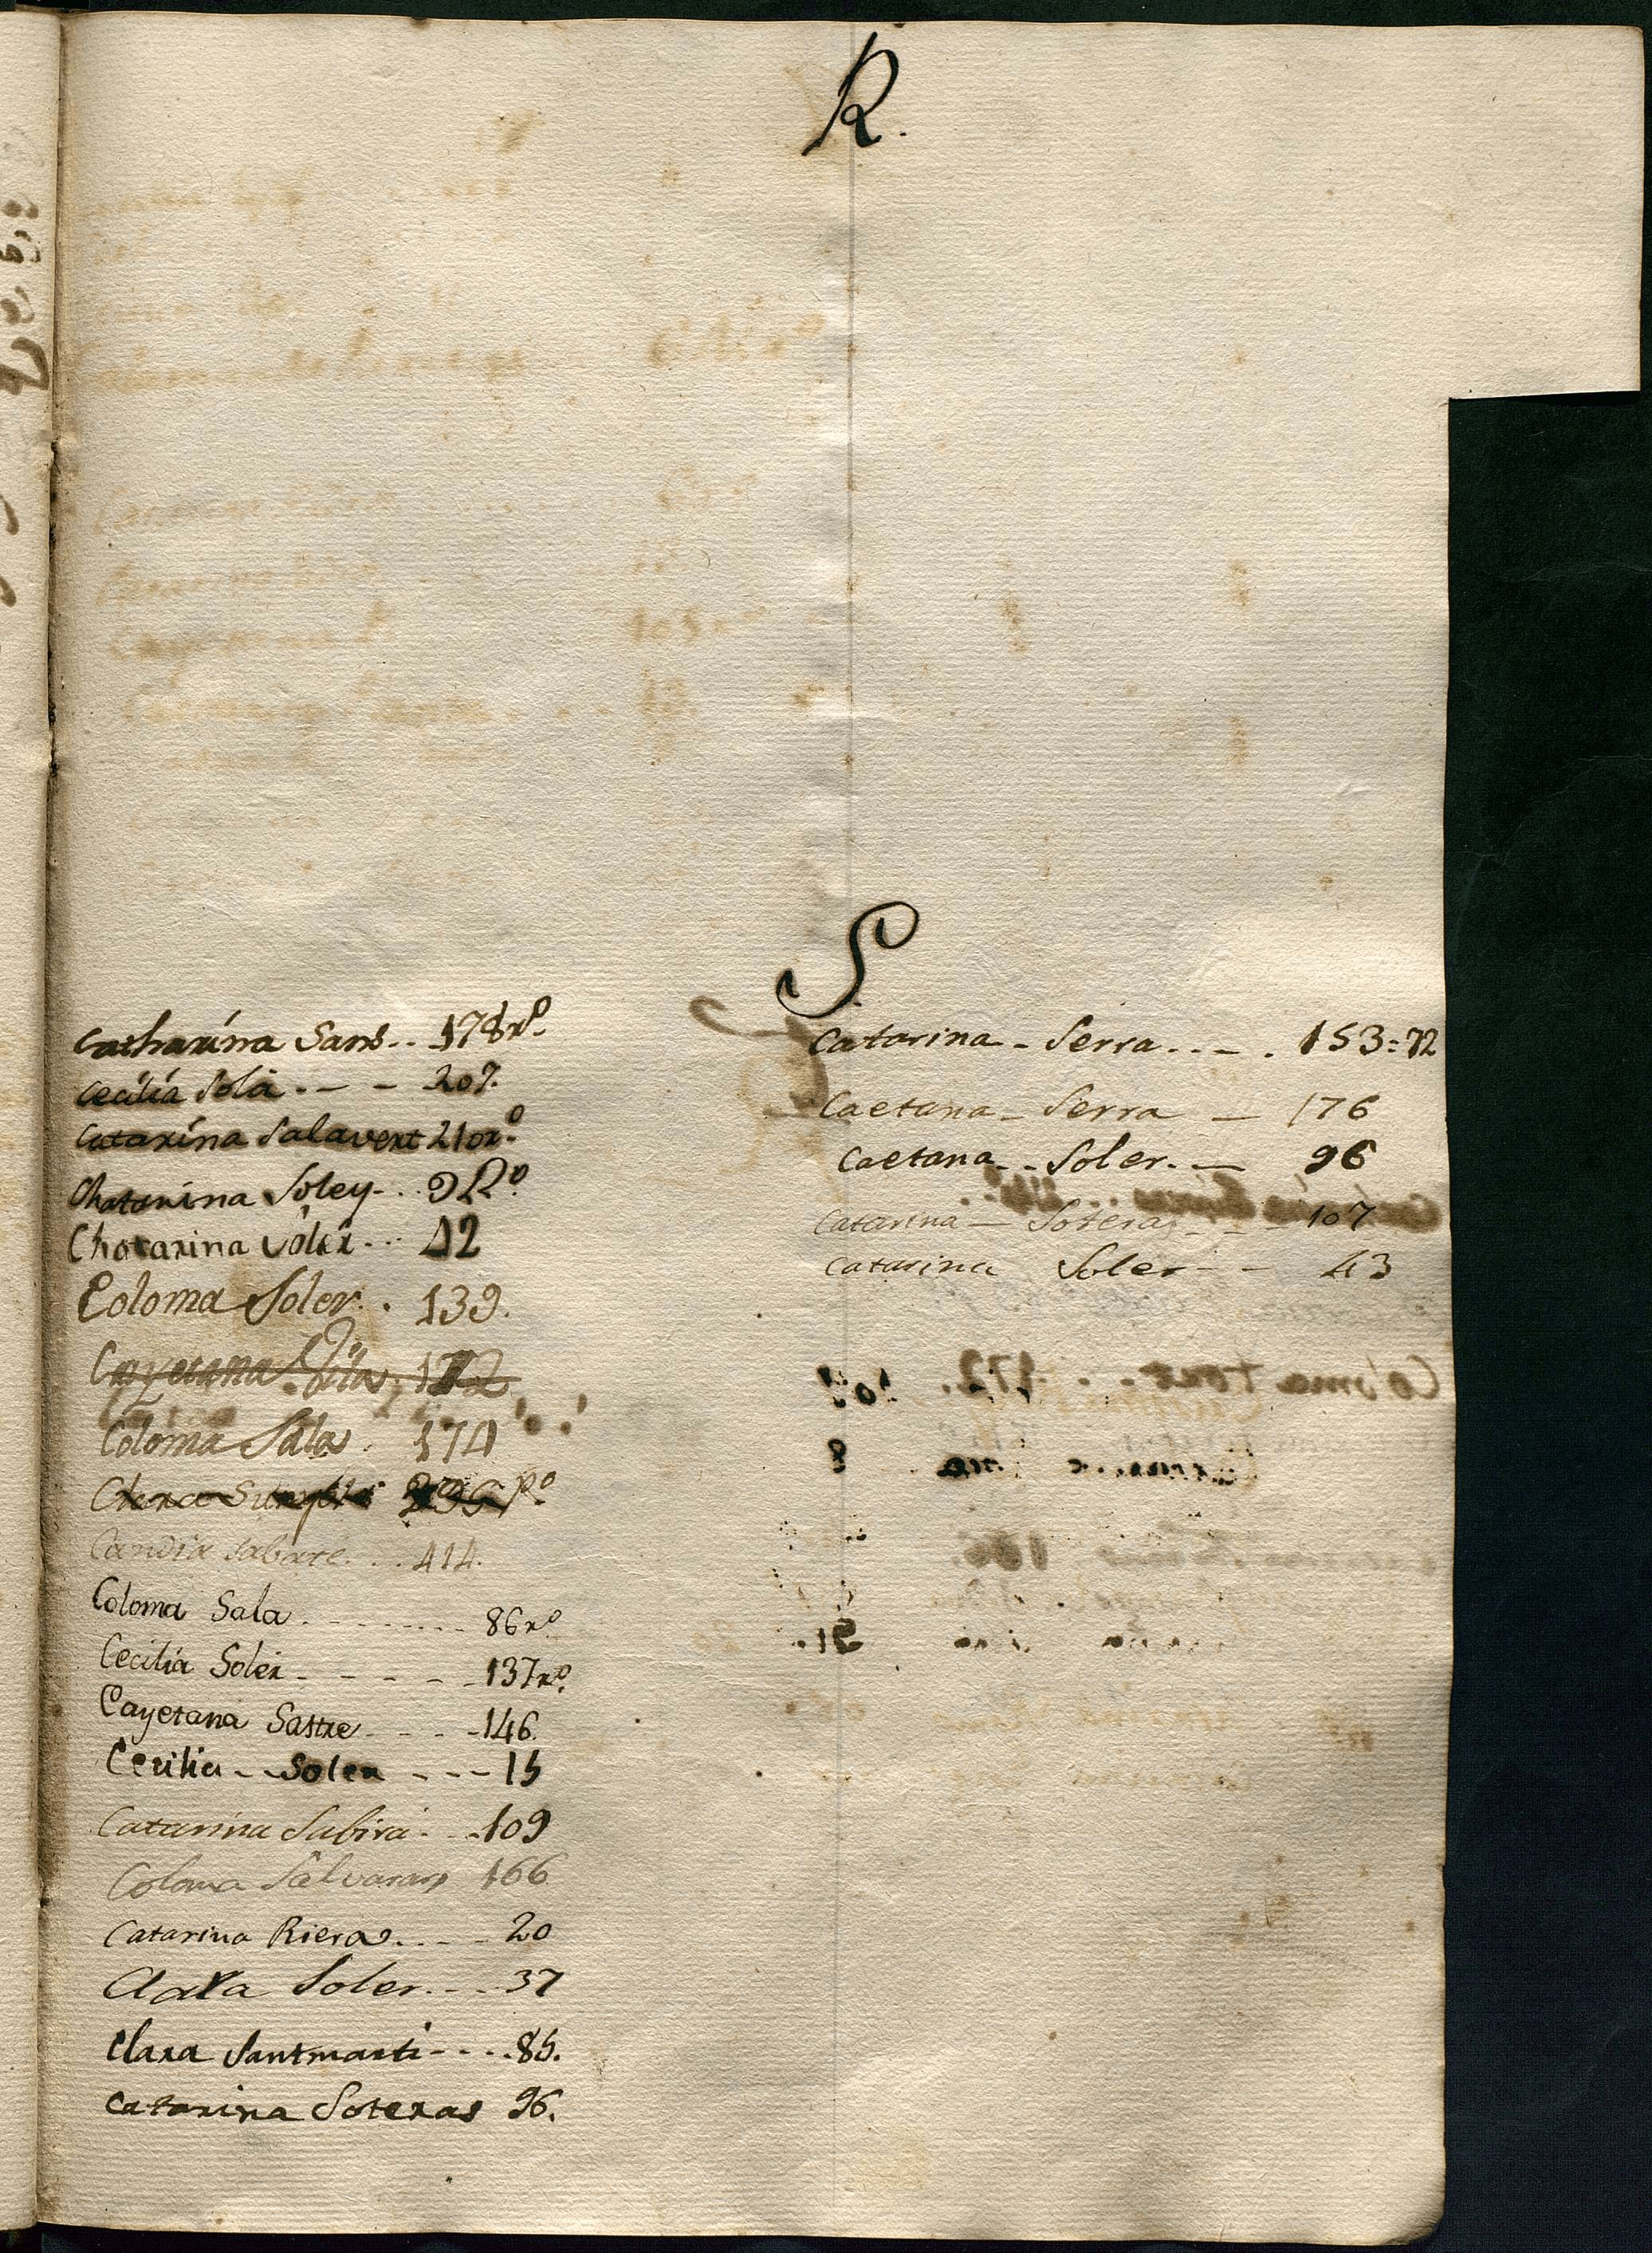 R.
S
Catharina Sans.. 178rº.
Cecilia Solá.-- - 207.
Catarina Salavert 210rº.
Chatarina Soley-.. 92Rº.
Chatarina Soler... 42
Coloma Soler.. 139.
Cayetana 172
Coloma Sala. 174
Clara
Candia Sabaté... 414.
Coloma Sala......... 86rº
Cecilia Soler - - - - - 137rº.
Cayetana Sastre - - - -146.
Cecilia - - Soler - - - 15
Catarina Sabirá. - -109
Coloma 166
Catarina Riera.... - 20
Clara Soler.--- 37
Clara Santmarti - - - -85.
Catarina Soteras 96.
Catarina - Serra..-. 153=72
Caetana - Serra - 176
Caetana - - Soler. - 96
Catarina - Soteras - - - 107
Catarina Soler - - 43